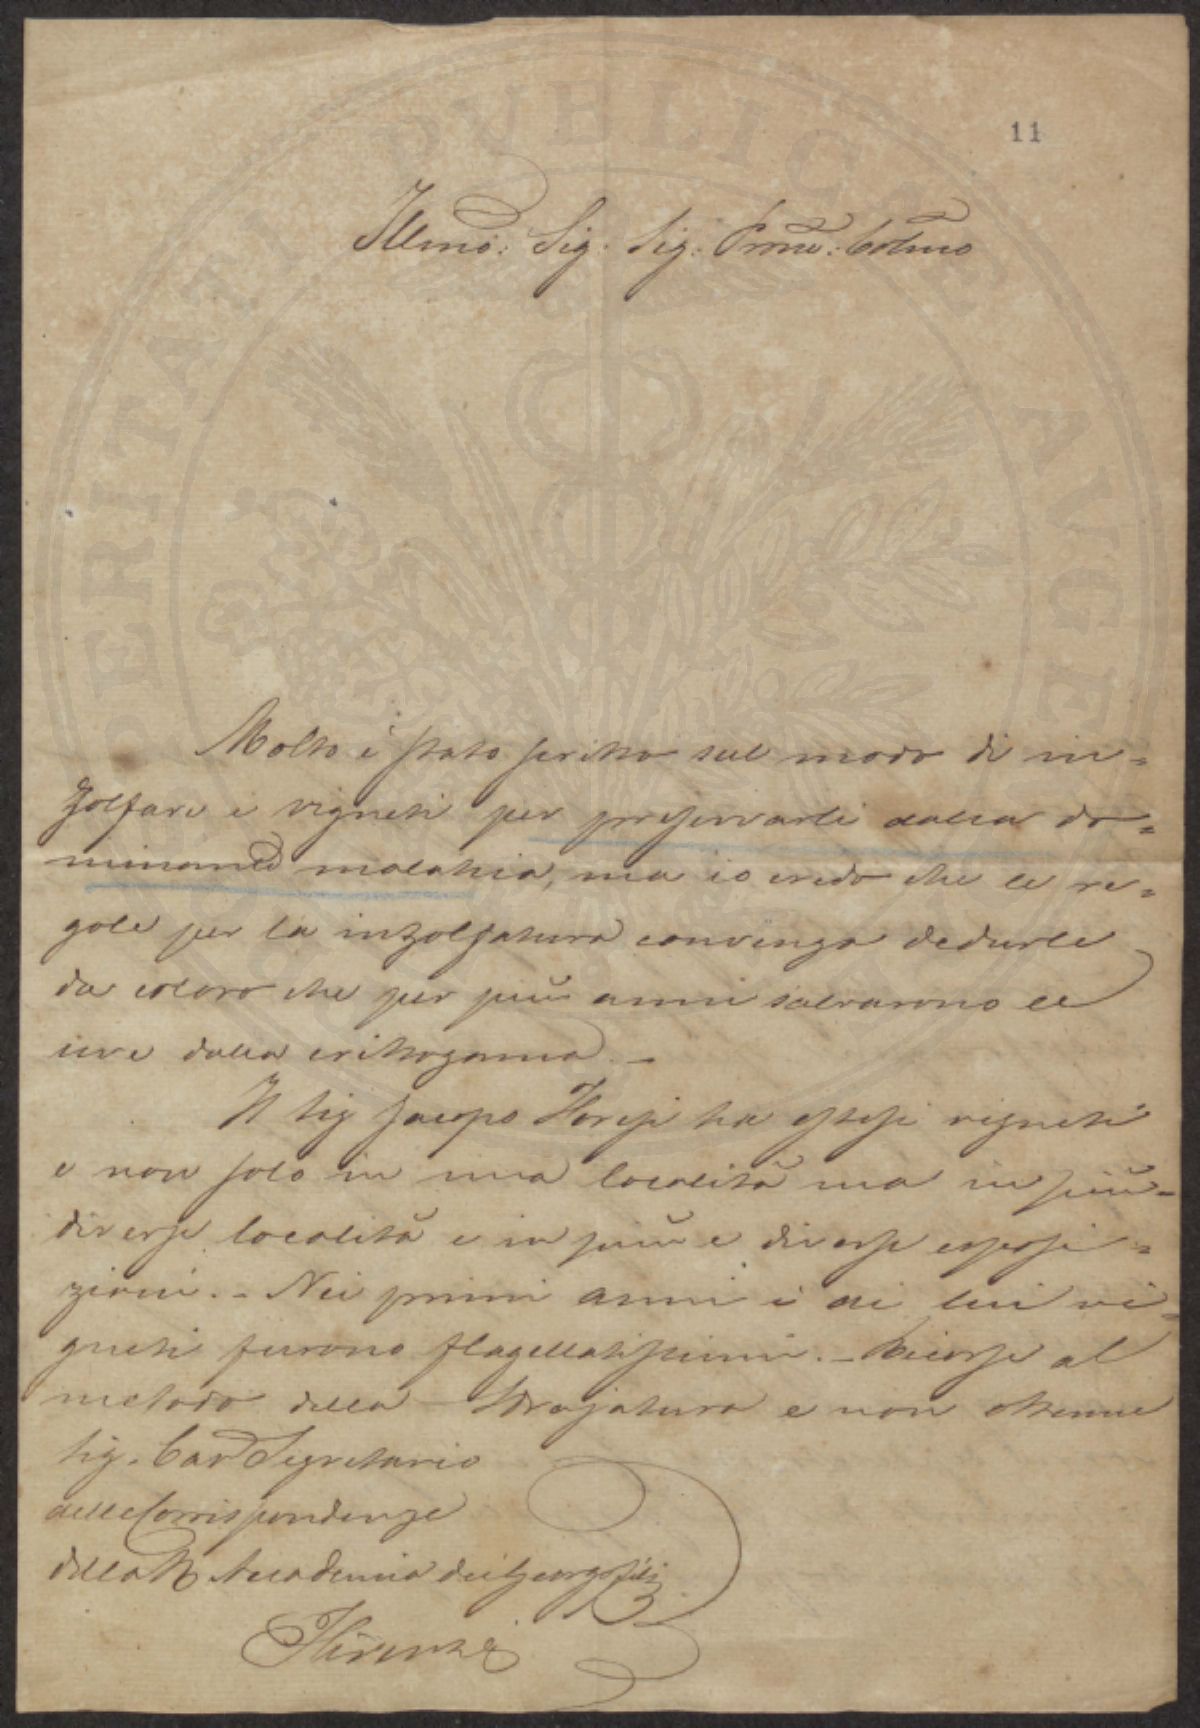 11
Illmo: Sig: Sig: Prone: Colmo
Molto è stato scritto sul modo di in=
zolfare i vigneti per preservarli dalla do=
minante malattia, ma io credo che le re=
gole per la inzolfatura convenga dedurle
da coloro che per più anni salvarono le
uve dalla crittogama. –
Il Sig Jacopo Foresi ha estesi vigneti
e non solo in una località ma in più
diverse località e in più e diverse esposi=
zioni. – Nei primi anni i di lui vi=
gneti furono flagellatissimi. – Ricorse al
metodo della Idrajatura e non ottenne
Sig. Cav Segretario
delle Corrispondenze
della R Accademia dei Georgofili
Firenze
PROSPERITATI PUBLICAE AUGENDAE